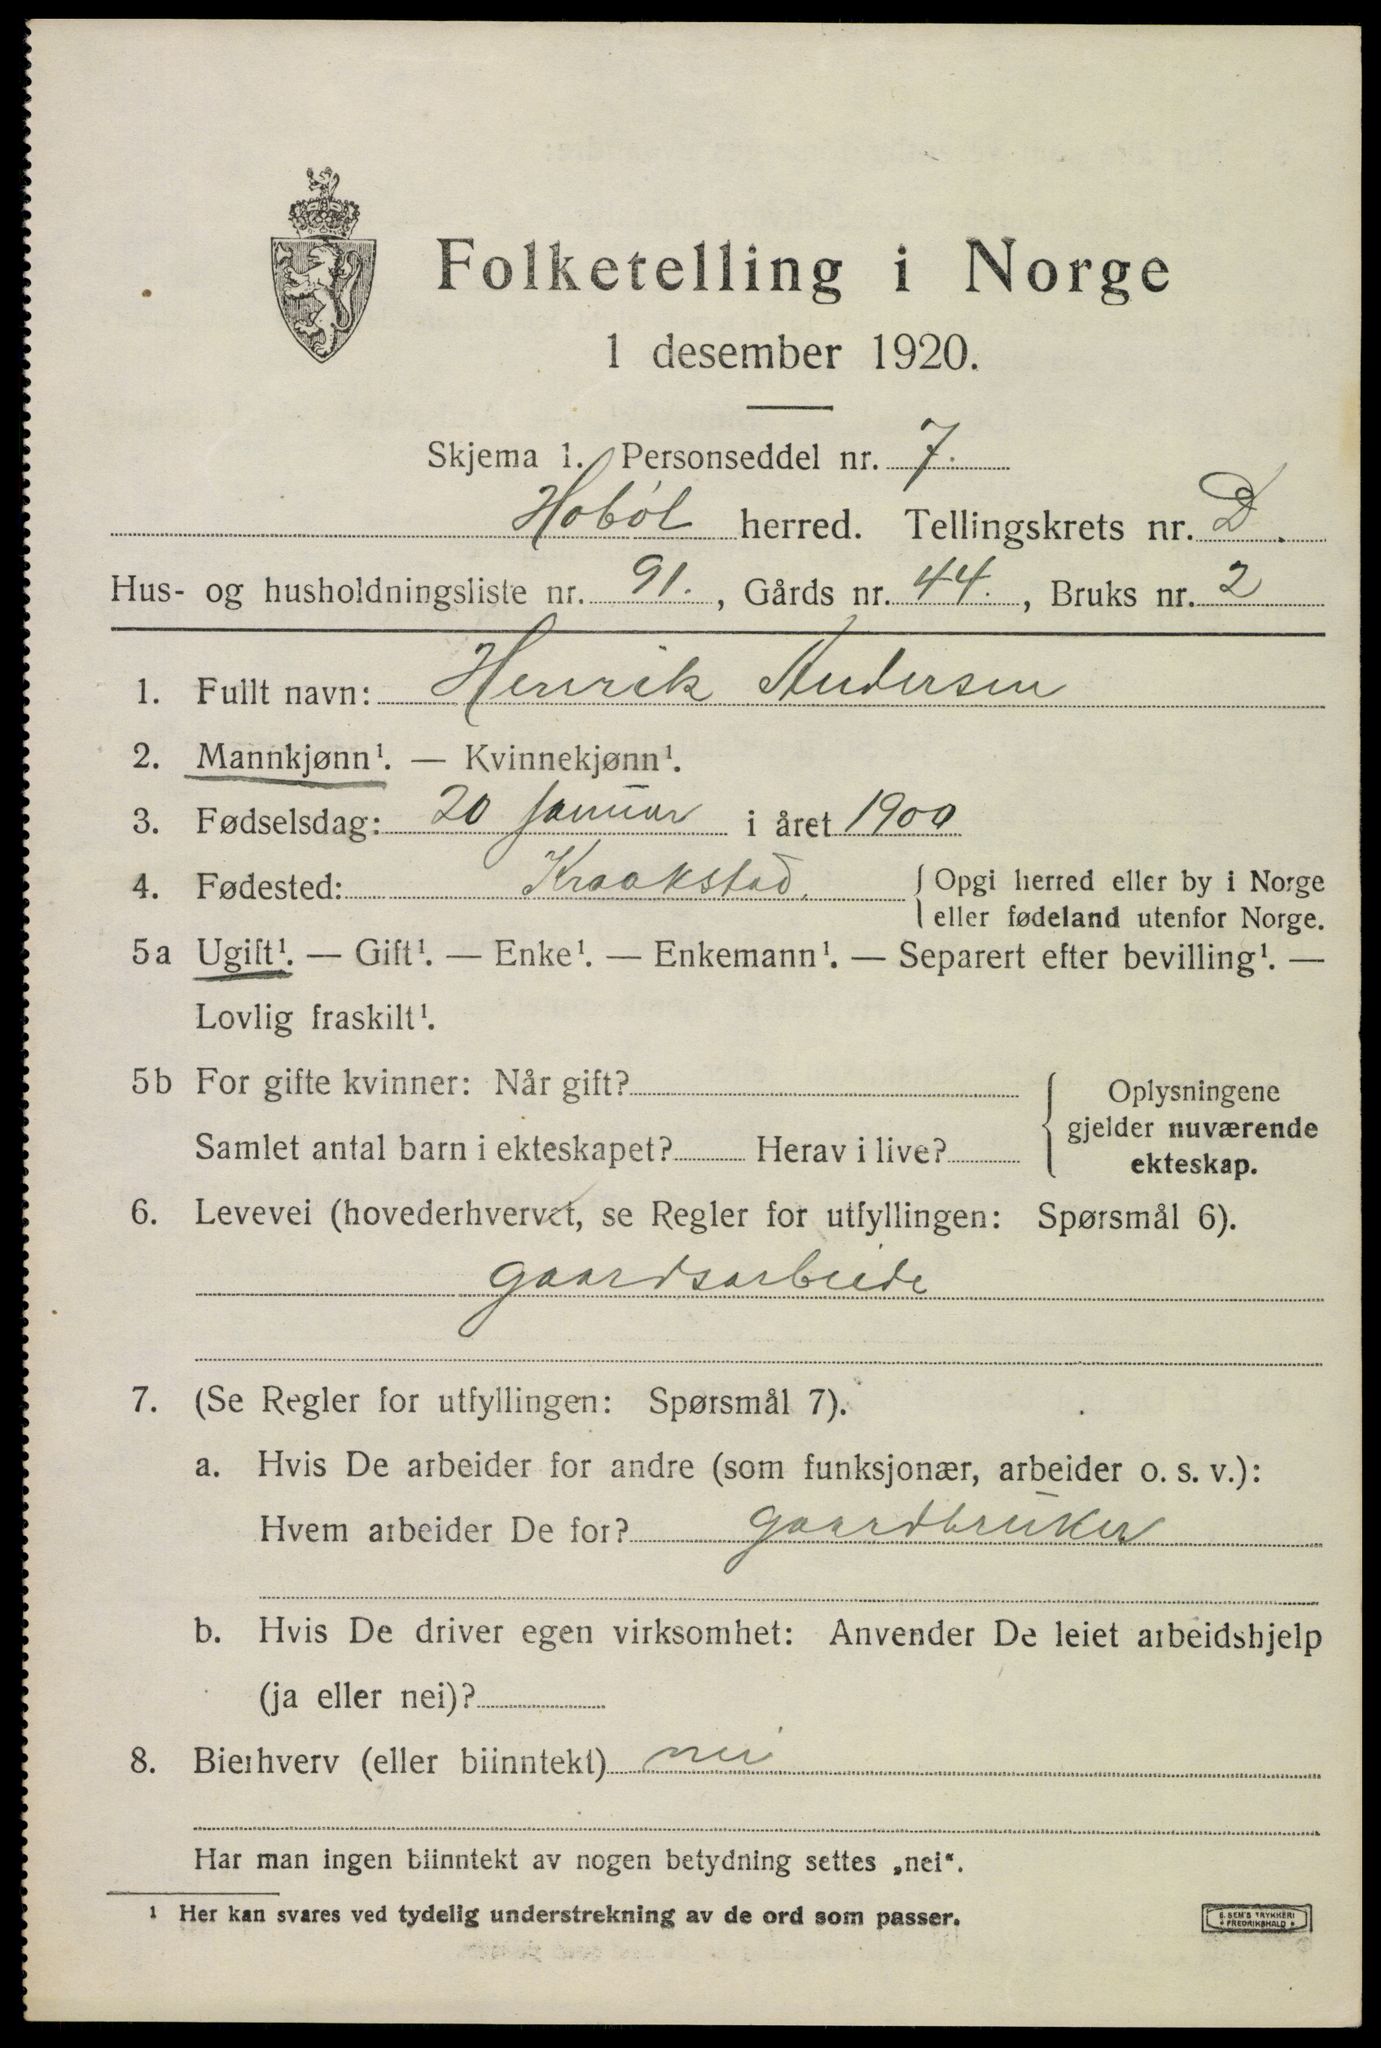 Folketelling i Norge
1 desember 1920.
Skjema 1. Personseddel nr. 7.
Hobøl herred. Tellingskrets nr. D.
Hus- og husholdningsliste nr. 91., Gårds nr. 44., Bruks nr. 2
1. Fullt navn: Henrik Andersen
2. Mannkjønn¹. — Kvinnekjønn¹.
3. Fødselsdag: 20 januar i året 1900
4. Fødested: Kraakstad. { Opgi herred eller by i Norge
eller fødeland utenfor Norge.
5a Ugift¹. — Gift¹. — Enke¹. — Enkemann¹. — Separert efter bevilling¹. —
Lovlig fraskilt¹.
5b For gifte kvinner: Når gift? { Oplysningene
gjelder nuværende
Samlet antal barn i ekteskapet? Herav i live? ekteskap.
6. Levevei (hovederhvervet, se Regler for utfyllingen: Spørsmål 6).
gaardsarbeide
7. (Se Regler for utfyllingen: Spørsmål 7).
a. Hvis De arbeider for andre (som funksjonær, arbeider o. s. v.):
Hvem arbeider De for? gaardbruker
b. Hvis De driver egen virksomhet: Anvender De leiet arbeidshjelp
(ja eller nei)?
8. Bierhverv (eller biinntekt) nei
Har man ingen biinntekt av nogen betydning settes „nei“.
¹ Her kan svares ved tydelig understrekning av de ord som passer.
E. SEM'S TRYKKERI
FREDRIKSHALD